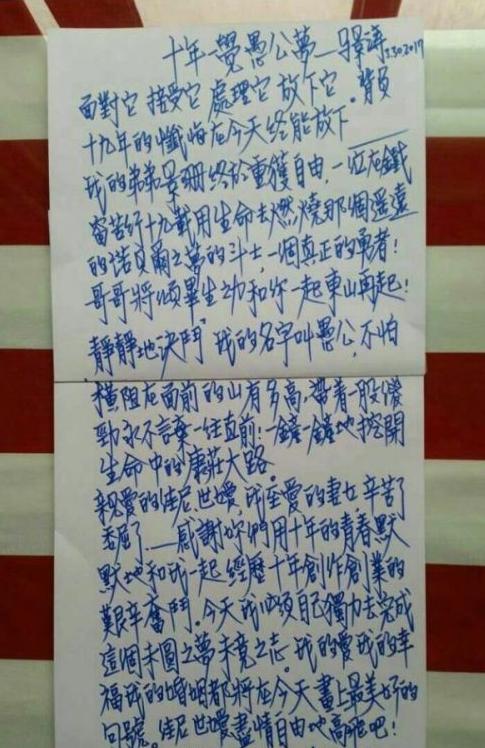 十年一覺愚公夢—景濤3.30.2017
面對它 接受它 處理它 放下它。背負
十九年的懺悔在今天終能放下
我的弟弟景珊終於重獲自由,一位在鐵
窗苦行十九載用生命去燃燒那個遥遠
的諾貝爾之夢的斗士,一個真正的勇者!
哥哥將傾畢生之力和你一起東山再起!
靜靜地決鬥"我的名字叫愚公,不怕
橫阻在面前的山有多高,帶着一股傻
勁永不言棄一往直前!一鏟一鏟地挖開
生命中的康莊大路。
親愛的佳尼,世嬡,我至愛的妻女,辛苦了
委屈了——感謝妳們用十年的青春默
默地和我一起經歷十年創作創業的
艱辛奮鬥。今天我必須自己獨力去完成
這個未圓之夢未竟之志。我的愛我的幸
福我的婚姻都將在今天畫上最美好的
句號。佳尼世嬡盡情自由地高飛吧!